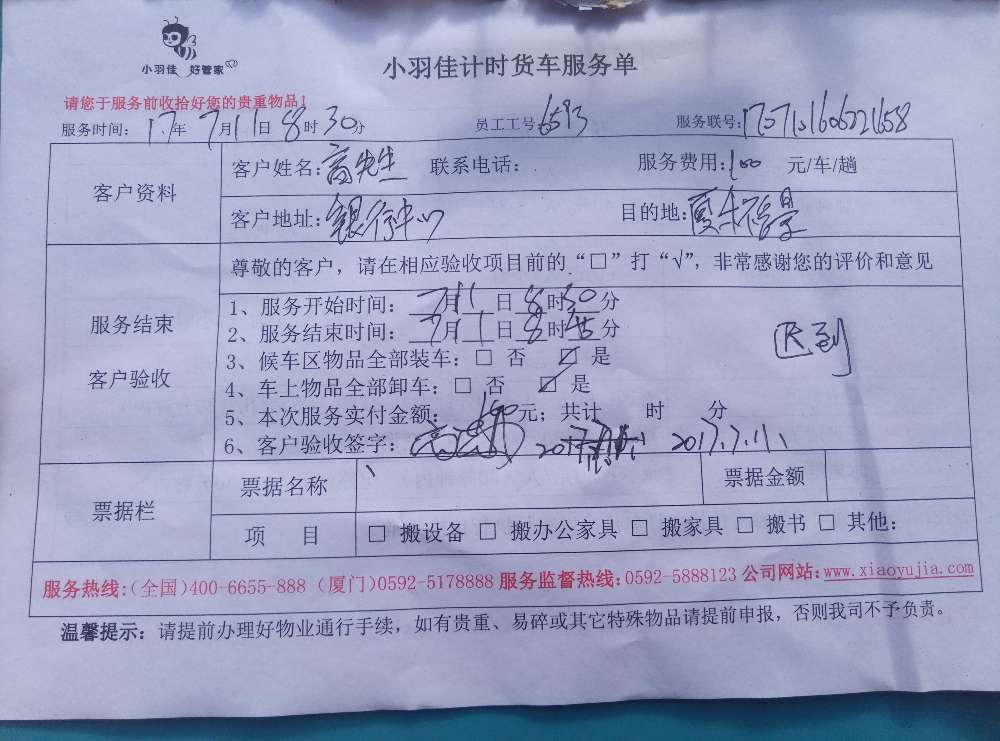 小羽佳 好管家
小羽佳计时货车服务单
请您于服务前收拾好您的贵重物品！
服务时间： 17年7月11日8时30分 员工工号：6593 服务联号：
客户资料
客户姓名：高先生 联系电话： 服务费用：100 元/车/趟
客户地址：银行中心 目的地：
服务结束
客户验收
尊敬的客户，请在相应验收项目前的“□”打“√”，非常感谢您的评价和意见
1、服务开始时间： 7月11日8时30分
2、服务结束时间： 7月11日8时45分
3、候车区物品全部装车：□ 否 ☑ 是
4、车上物品全部卸车：□ 否 ☑ 是
5、本次服务实付金额： 100元；共计 时 分
6、客户验收签字： 2017.7.11
票据栏
票据名称 票据金额
项 目 □ 搬设备 □ 搬办公家具 □ 搬家具 □ 搬书 □ 其他：
服务热线：(全国)400-6655-888 (厦门)0592-5178888 服务监督热线：0592-5888123 公司网站：www.xiaoyujia.com
温馨提示：请提前办理好物业通行手续，如有贵重、易碎或其它特殊物品请提前申报，否则我司不予负责。